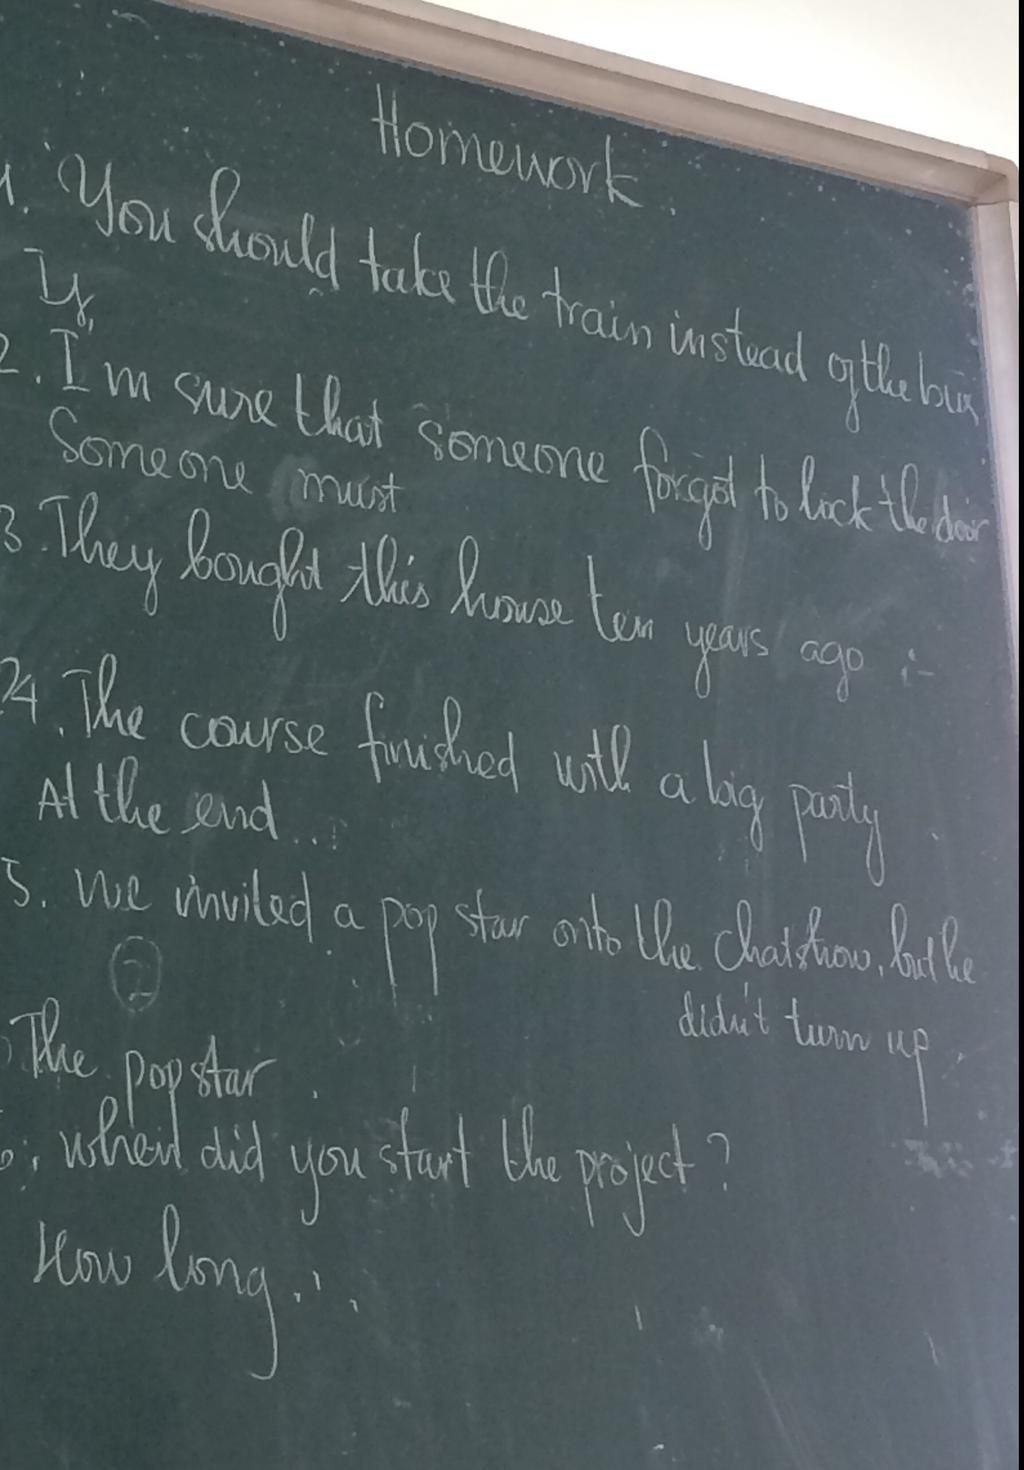 Homework.
1. You should take the train instead of the bus
If,
2. I'm sure that someone forgot to lock the door
Someone must
3. They bought this house ten years ago :-
4. The course finished with a big party.
At the end...
5. We invited a pop star onto the chatshow, but he
didn't turn up.
2
The pop star.
6. when did you start the project?
How long...